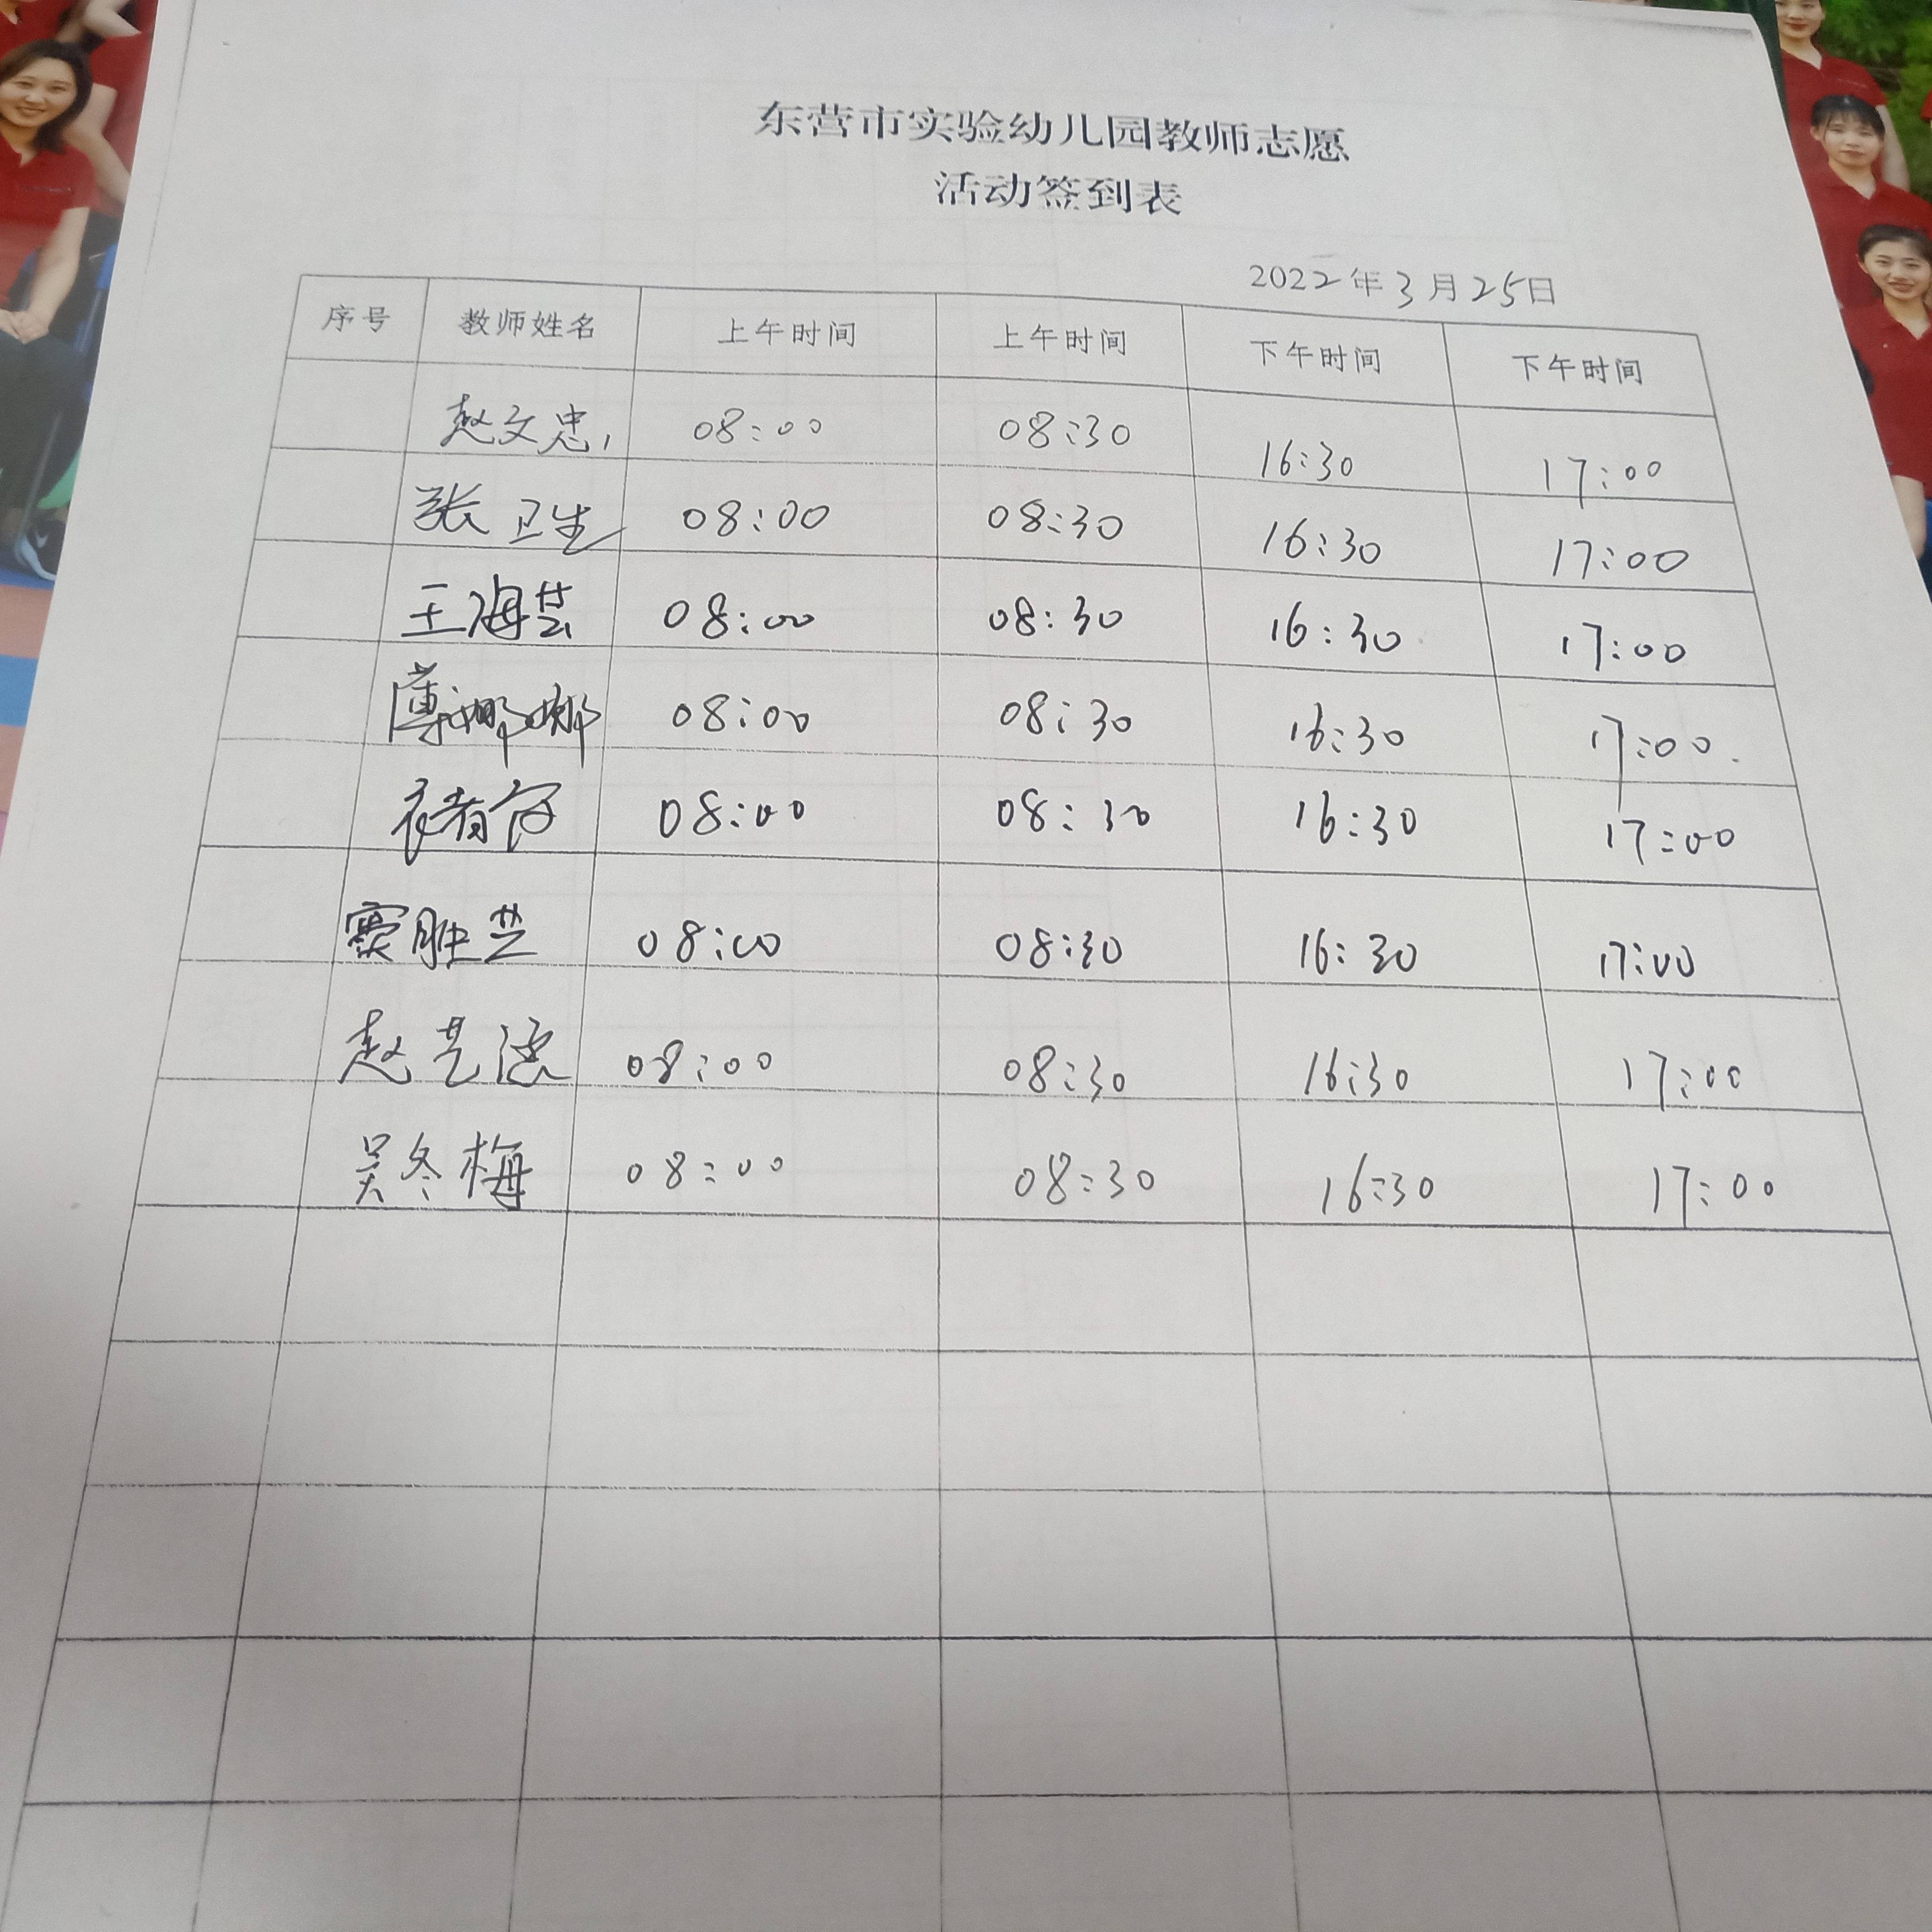 东营市实验幼儿园教师志愿
活动签到表
2022年3月25日
序号 教师姓名 上午时间 上午时间 下午时间 下午时间
赵文忠 08:00 08:30 16:30 17:00
张卫生 08:00 08:30 16:30 17:00
王海芸 08:00 08:30 16:30 17:00
薄娜娜 08:00 08:30 16:30 17:00
08:00 08:30 16:30 17:00
窦胜芝 08:00 08:30 16:30 17:00
赵艺 08:00 08:30 16:30 17:00
吴冬梅 08:00 08:30 16:30 17:00